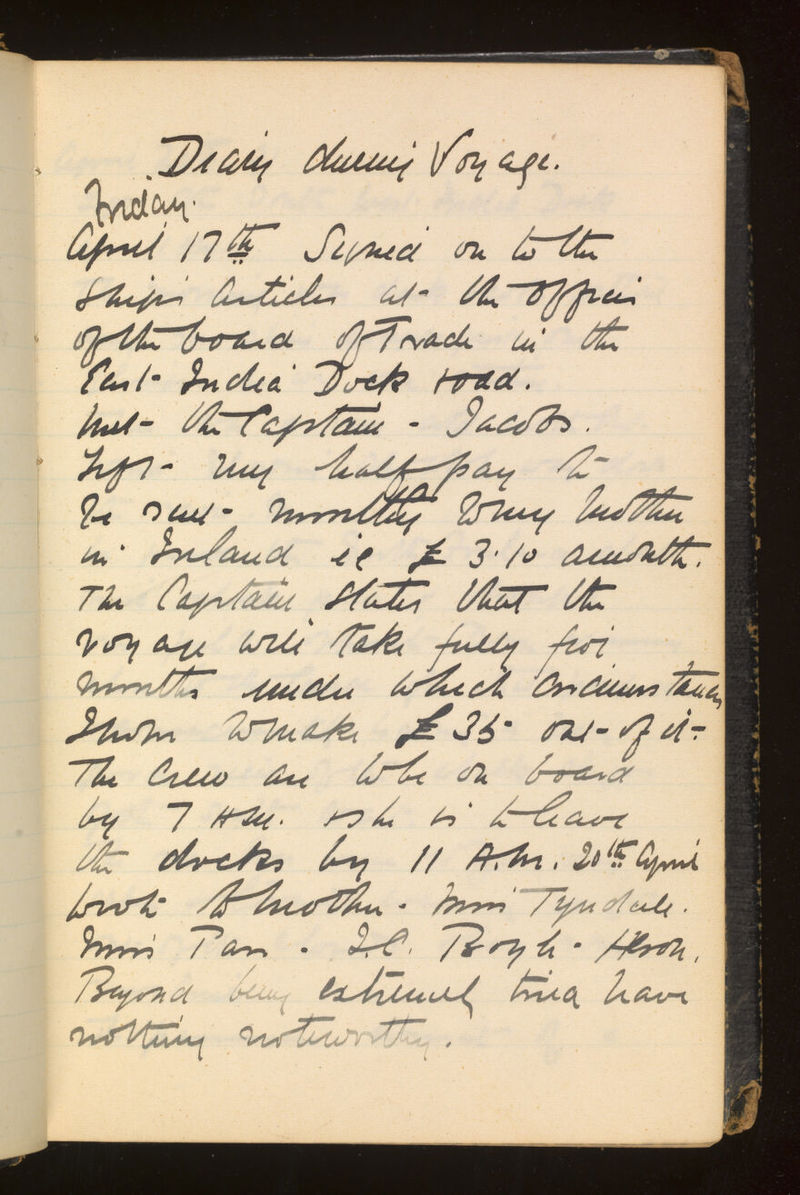 Diary during Voyage.
Friday.
April 17th Signed on to the
Ship's Articles at the Offices
of the board of Trade in the
East India Dock road.
Met the Captain - Jacobs.
Left my half pay to
be sent monthly to my mother
in Ireland ie £3.10 a month.
The Captain states that the
voyage will take fully five
months under which circumstances
I hope to make £35 out of it.
The Crew are to be on board
by 7 A.M. & she is to leave
the docks by 11 A.M. 20th April
Wrote to Mother - Miss Tyndale.
Miss - J.C. Boyle -
Beyond being extremely tired have
nothing noteworthy.